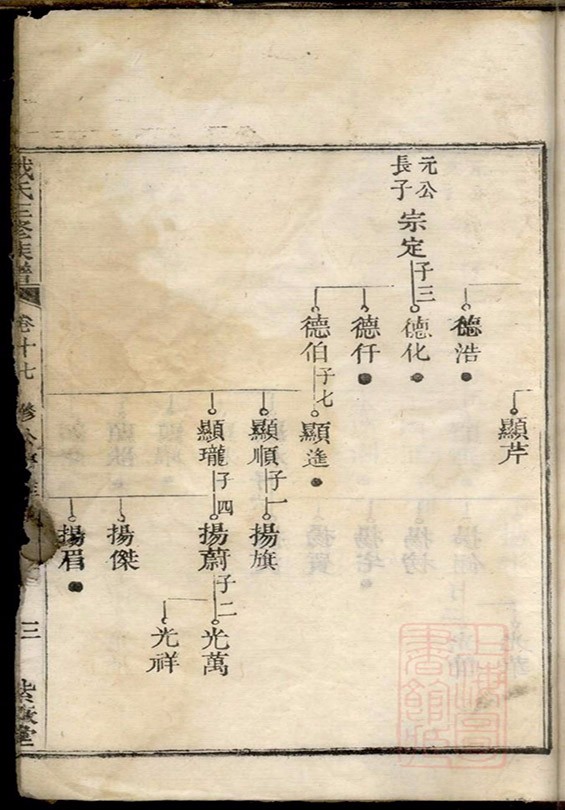 元公
長子
宗定
子三
德浩
德化
德仟
德伯
子七
顯芹
顯進
顯順
子一
顯瓏
子四
揚旗
揚蔚
子二
揚傑
揚眉
光萬
光祥
氏三修族譜
卷十七
三
紫薇堂
上海圖書館藏